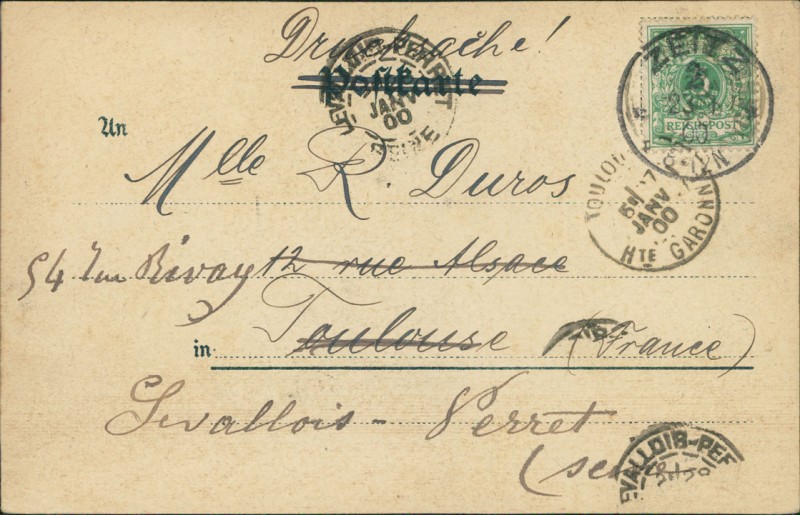 Drucksache!
Postkarte
LEVALLOIS-PERRET
JANV
00
SEINE
ZEITZ
REICHSPOST
An
Mlle R. Duros
TOULOUSE
JANV
00
HTE GARONNE
54 rue Rivay 12 rue Alsace
in Toulouse (France)
Levallois-Perret
(seine
LEVALLOIS-PER